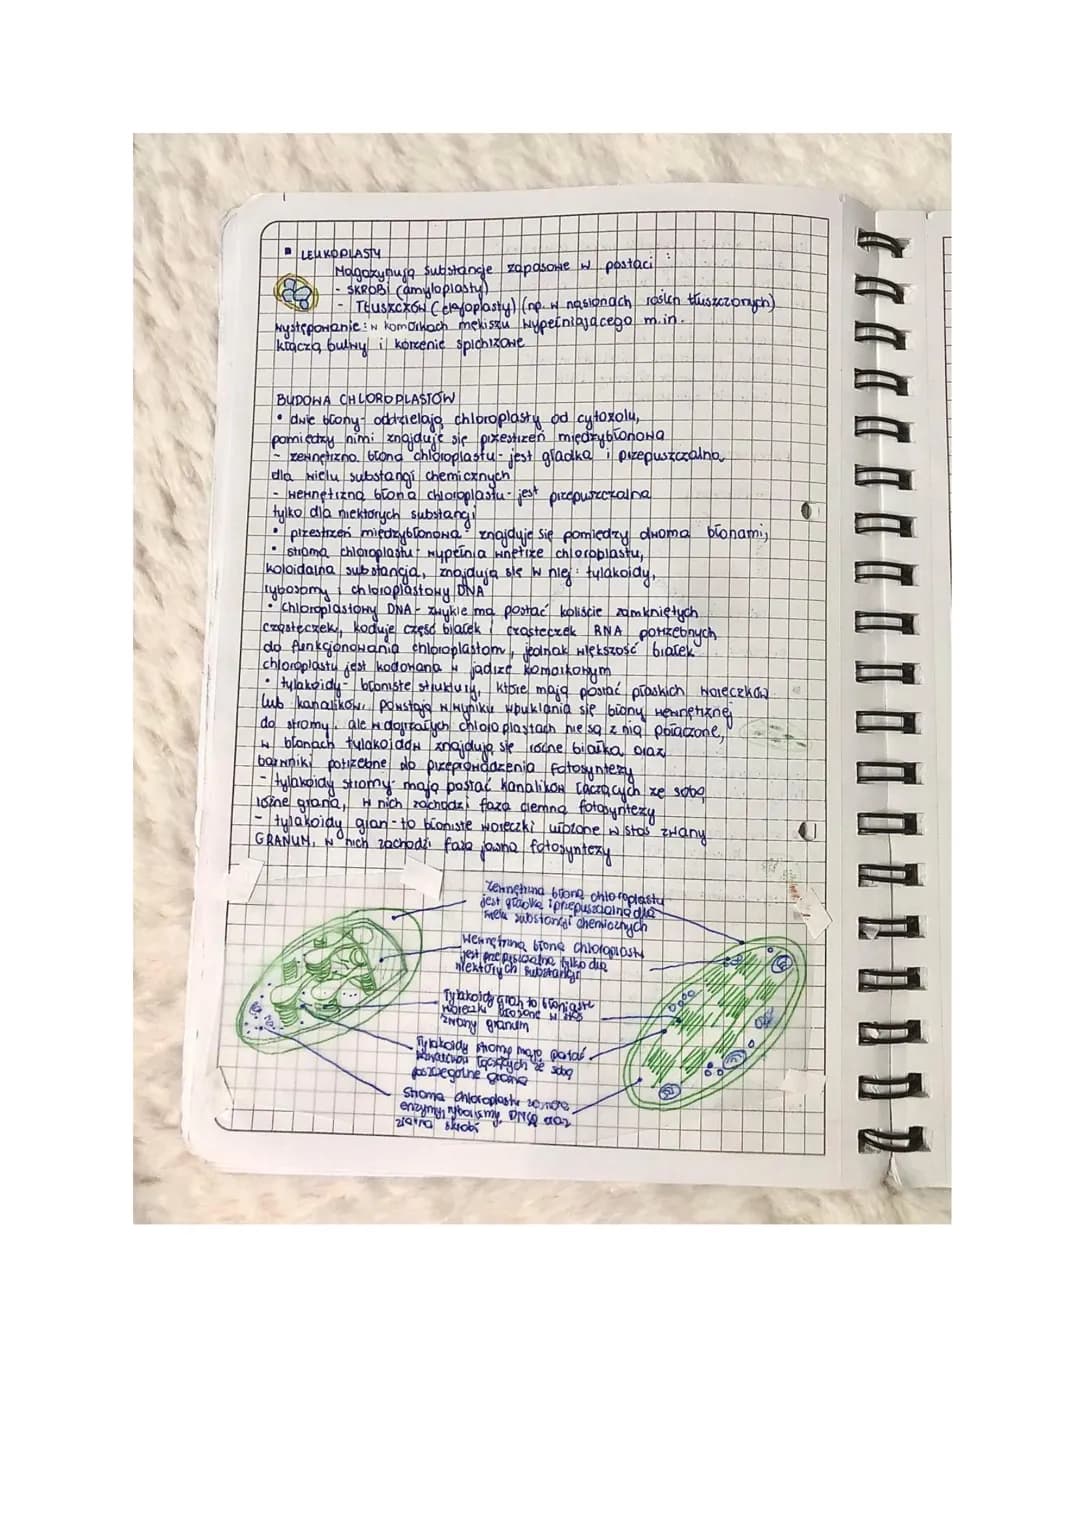 LEUKOPLASTY
Magazynują substancje zapasowe w postaci :
- SKROBI (amyloplasty)
- TŁUSZCZÓW (elajoplasty) (np. w nasionach roślin tłuszczonych)
występowanie: w komórkach mękiszu wypełniającego m.in.
kłącza, bulwy i korzenie spichrzowe
BUDOWA CHLOROPLASTÓW
• dwie błony - oddzielają chloroplasty od cytozolu,
pomiędzy nimi znajduje się przestrzeń międzybłonowa
- zewnętrzna błona chloroplastu - jest gładka i przepuszczalna
dla wielu substancji chemicznych
- wewnętrzna błona chloroplastu - jest przepuszczalna
tylko dla niektórych substancji
• przestrzeń międzybłonowa - znajduje się pomiędzy dwoma błonami,
• stroma chloroplastu - wypełnia wnętrze chloroplastu,
koloidalna substancja, znajdują się w niej : tylakoidy,
rybosomy i chloroplastowy DNA
• Chloroplastowy DNA - zwykle ma postać koliście zamkniętych
cząsteczek, koduje część białek i cząsteczek RNA potrzebnych
do funkcjonowania chloroplastom, jednak większość białek
chloroplastu jest kodowana w jądrze komórkowym
• tylakoidy - błoniste struktury, które mają postać płaskich woreczków
lub kanalików. Powstają w wyniku wpuklania się błony wewnętrznej
do stromy, ale w dojrzałych chloroplastach nie są z nią połączone,
w błonach tylakoidów znajdują się różne białka oraz
barwniki potrzebne do przeprowadzenia fotosyntezy
- tylakoidy stromy - mają postać kanalików łączących ze sobą
różne grana, w nich zachodzi faza ciemna fotosyntezy
- tylakoidy gran - to błoniste woreczki ułożone w stos zwany
GRANUM, w nich zachodzi faza jasna fotosyntezy
Zewnętrzna błona chloroplastu
jest gładka i przepuszczalna dla
wielu substancji chemicznych
Wewnętrzna błona chloroplastu
jest przepuszczalna tylko dla
niektórych substancji
Tylakoidy gran to błoniaste
woreczki ułożone w stos
zwany granum
Tylakoidy stromy mają postać
kanalików łączących ze sobą
poszczególne grana
Stroma chloroplastu
enzymy, rybosomy, DNA oraz
ziarna skrobi